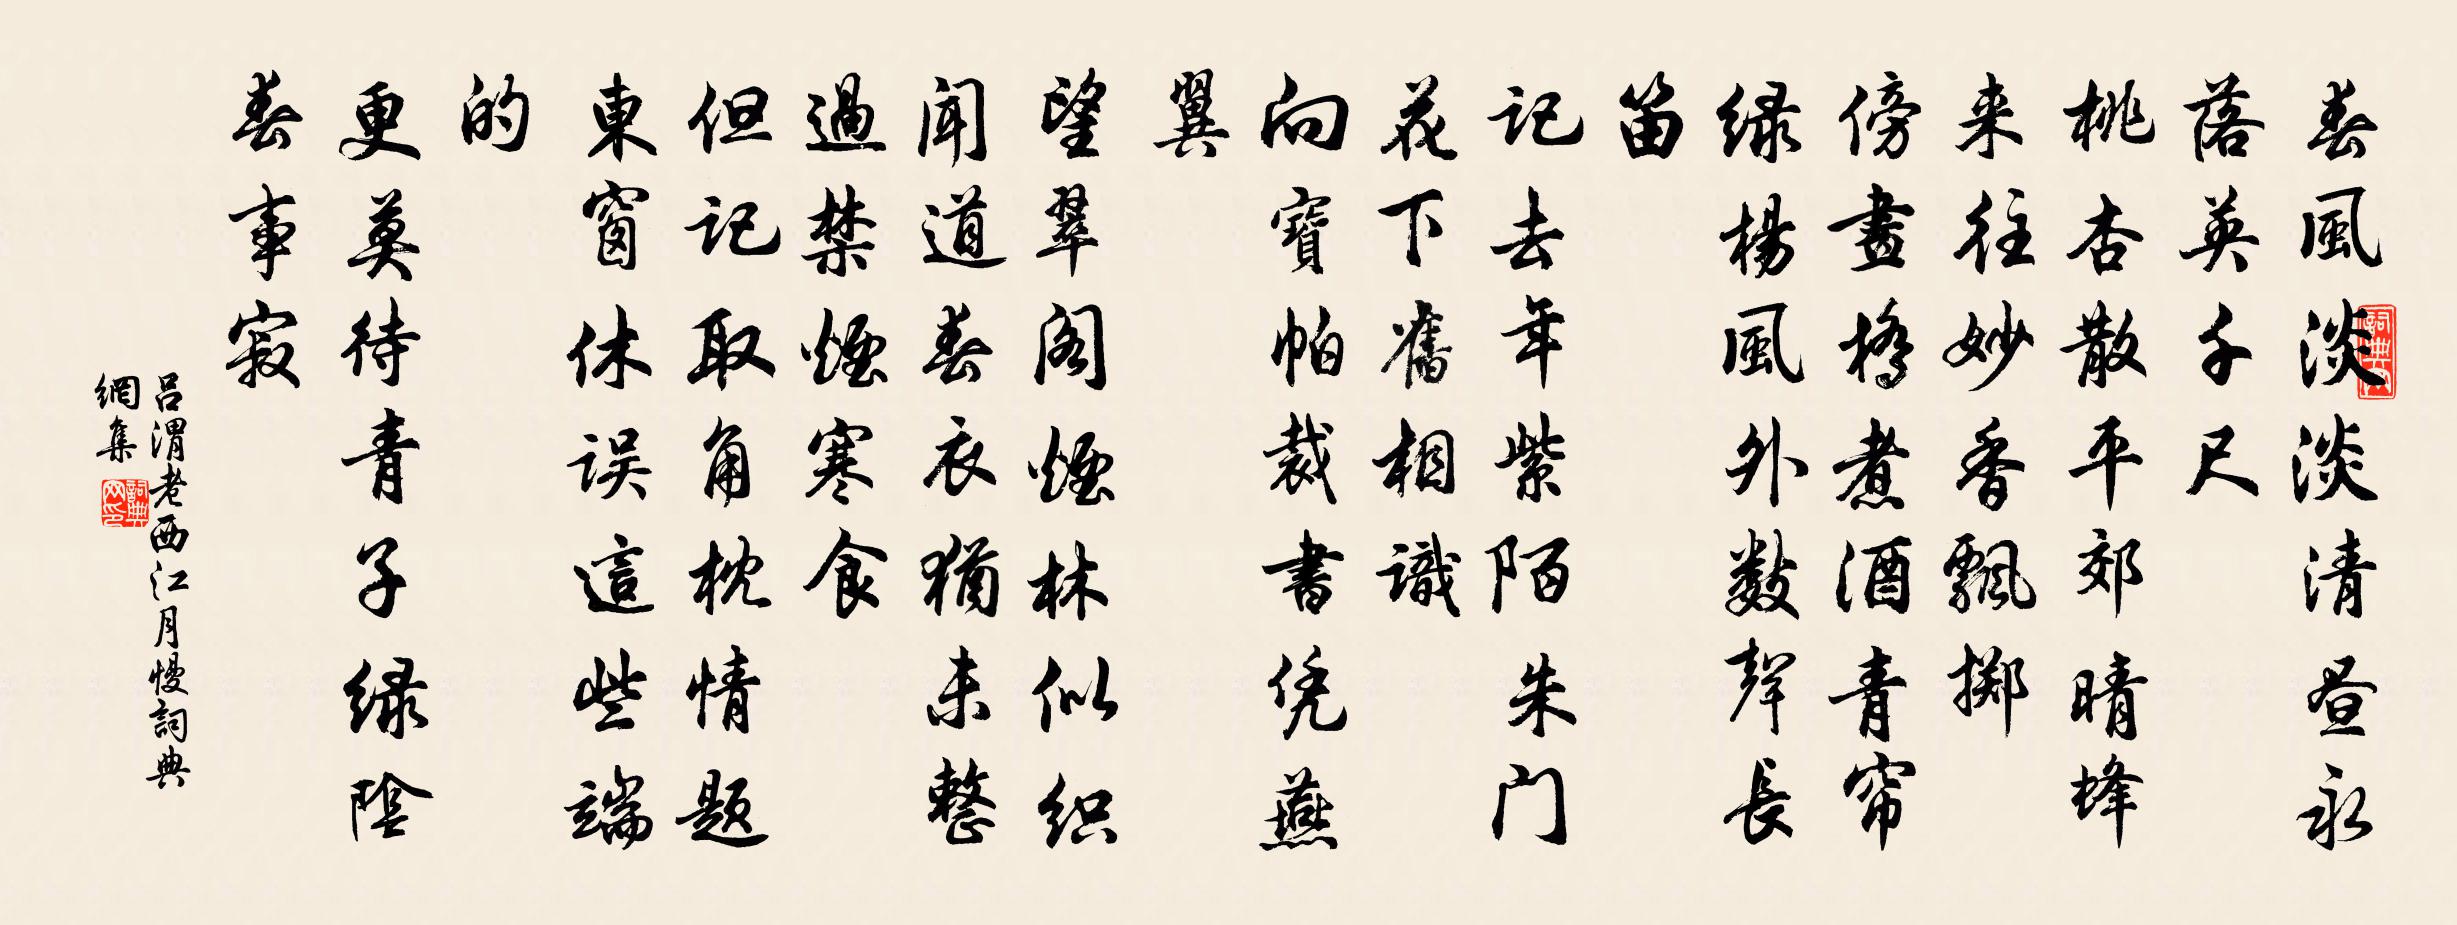 春風淡淡清昼永
落英千尺
桃杏散平郊晴蜂
来往妙香飄掷
傍畫橋煮酒青帘
绿楊風外数聲長
笛
记去年紫陌朱门
花下舊相識
向寶帕裁書凭燕
翼
望翠阁煙林似织
闻道春衣猶未整
過禁煙寒食
但记取角枕情题
東窗休误這些端
的
更莫待青子绿陰
春事寂
吕渭老西江月慢詞典
網集